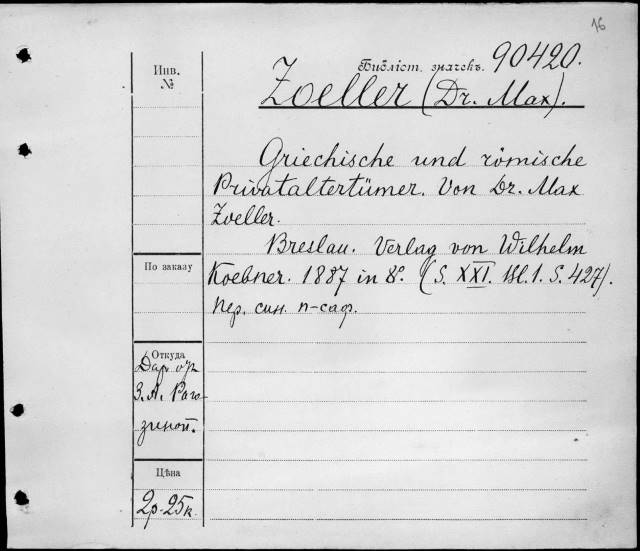 16
Инв.
№
Библіот. значекъ. 90420.
Zoeller (Dr. Max).
Griechische und römische
Privataltertümer. Von Dr. Max
Zoeller.
Breslau. Verlag von Wilhelm
Koebner. 1887 in 8º. (S. XXI. Bl. 1. S. 427).
Пер. син. п-саф.
По заказу
Откуда
Дар
З. А. Рого-
зиной.
Цѣна
2р. 25к.